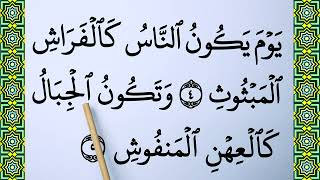 يَوْمَ يَكُونُ ٱلنَّاسُ كَٱلْفَرَاشِ
ٱلْمَبْثُوثِ ٤ وَتَكُونُ ٱلْجِبَالُ
كَٱلْعِهْنِ ٱلْمَنفُوشِ ٥